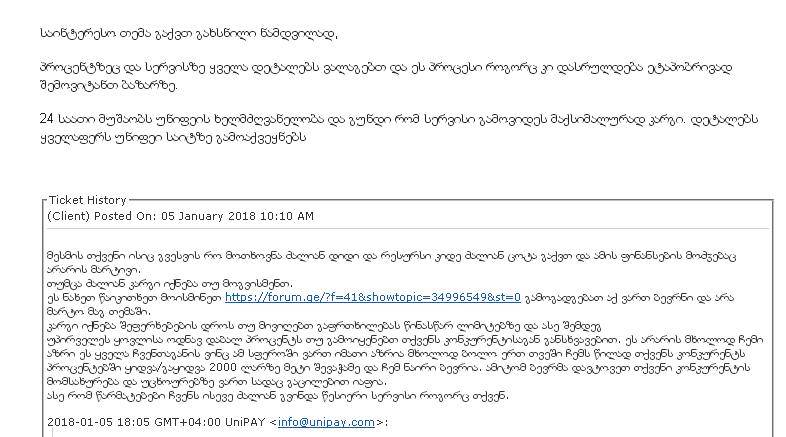 საინტერესო თემა გაქვთ გახსნილი ნამდვილად,
პროცენტზეც და სერვისზე ყველა დეტალებს ვალაგებთ და ეს პროცესი როგორც კი დასრულდება ეტაპობრივად
შემოვიტანთ ბაზარზე.
24 საათი მუშაობს უნიფეის ხელმძღვანელობა და გუნდი რომ სერვისი გამოვიდეს მაქსიმალურად კარგი. დეტალებს
ყველაფერს უნიფეი საიტზე გამოაქვეყნებს
Ticket History
(Client) Posted On: 05 January 2018 10:10 AM
მესმის თქვენი ისიც გვესვის რო მოთხოვნა ძალიან დიდი და რესურსი კიდე ძალიან ცოტა გაქვთ და ამის ფინანსების მოძჯებაც
არარის მარტივი.
თუმცა ძალიან კარგი იქნება თუ მოგვისმენთ.
ეს ნახეთ წაიკითხეთ მოისმინეთ https://forum.ge/?f=41&showtopic=34996549&st=0 გამოგადგებათ აქ ვართ ბევრნი და არა
მარტო მაგ თემაში.
კარგი იქნება შეფერხებების დროს თუ მივიღებთ გაფრთხილებას წინასწარ ლიმიტებზე და ასე შემდეგ
უპირველეს ყოვლისა ოდნავ დაბალ პროცენტს თუ გამოიყენებთ თქვენს კონკურენტისაგან განსხვავებით. ეს არარის მხოლოდ ჩემი
აზრი ეს ყველა ჩვენთაგანის ვინც ამ სფეროში ვართ იმათი აზრია მხოლოდ ბოლო ერთ თვეში ჩემს წილად თქვენს კონკურენტს
პროცენტებში ყიდვა/გაყიდვა 2000 ლარზე მეტი შევაჭამე და ჩემ ნაირი ბევრია. ამიტომ ბევრმა დავტოვეთ თქვენი კონკურენტის
მომსახურება და უცხოურებზე ვართ სადაც გაცილებით იაფია.
ასე რომ წარმატებები ჩვენს ისევე ძალიან გვინდა წესიერი სერვისი როგორც თქვენ.
2018-01-05 18:05 GMT+04:00 UniPAY <info@unipay.com>: